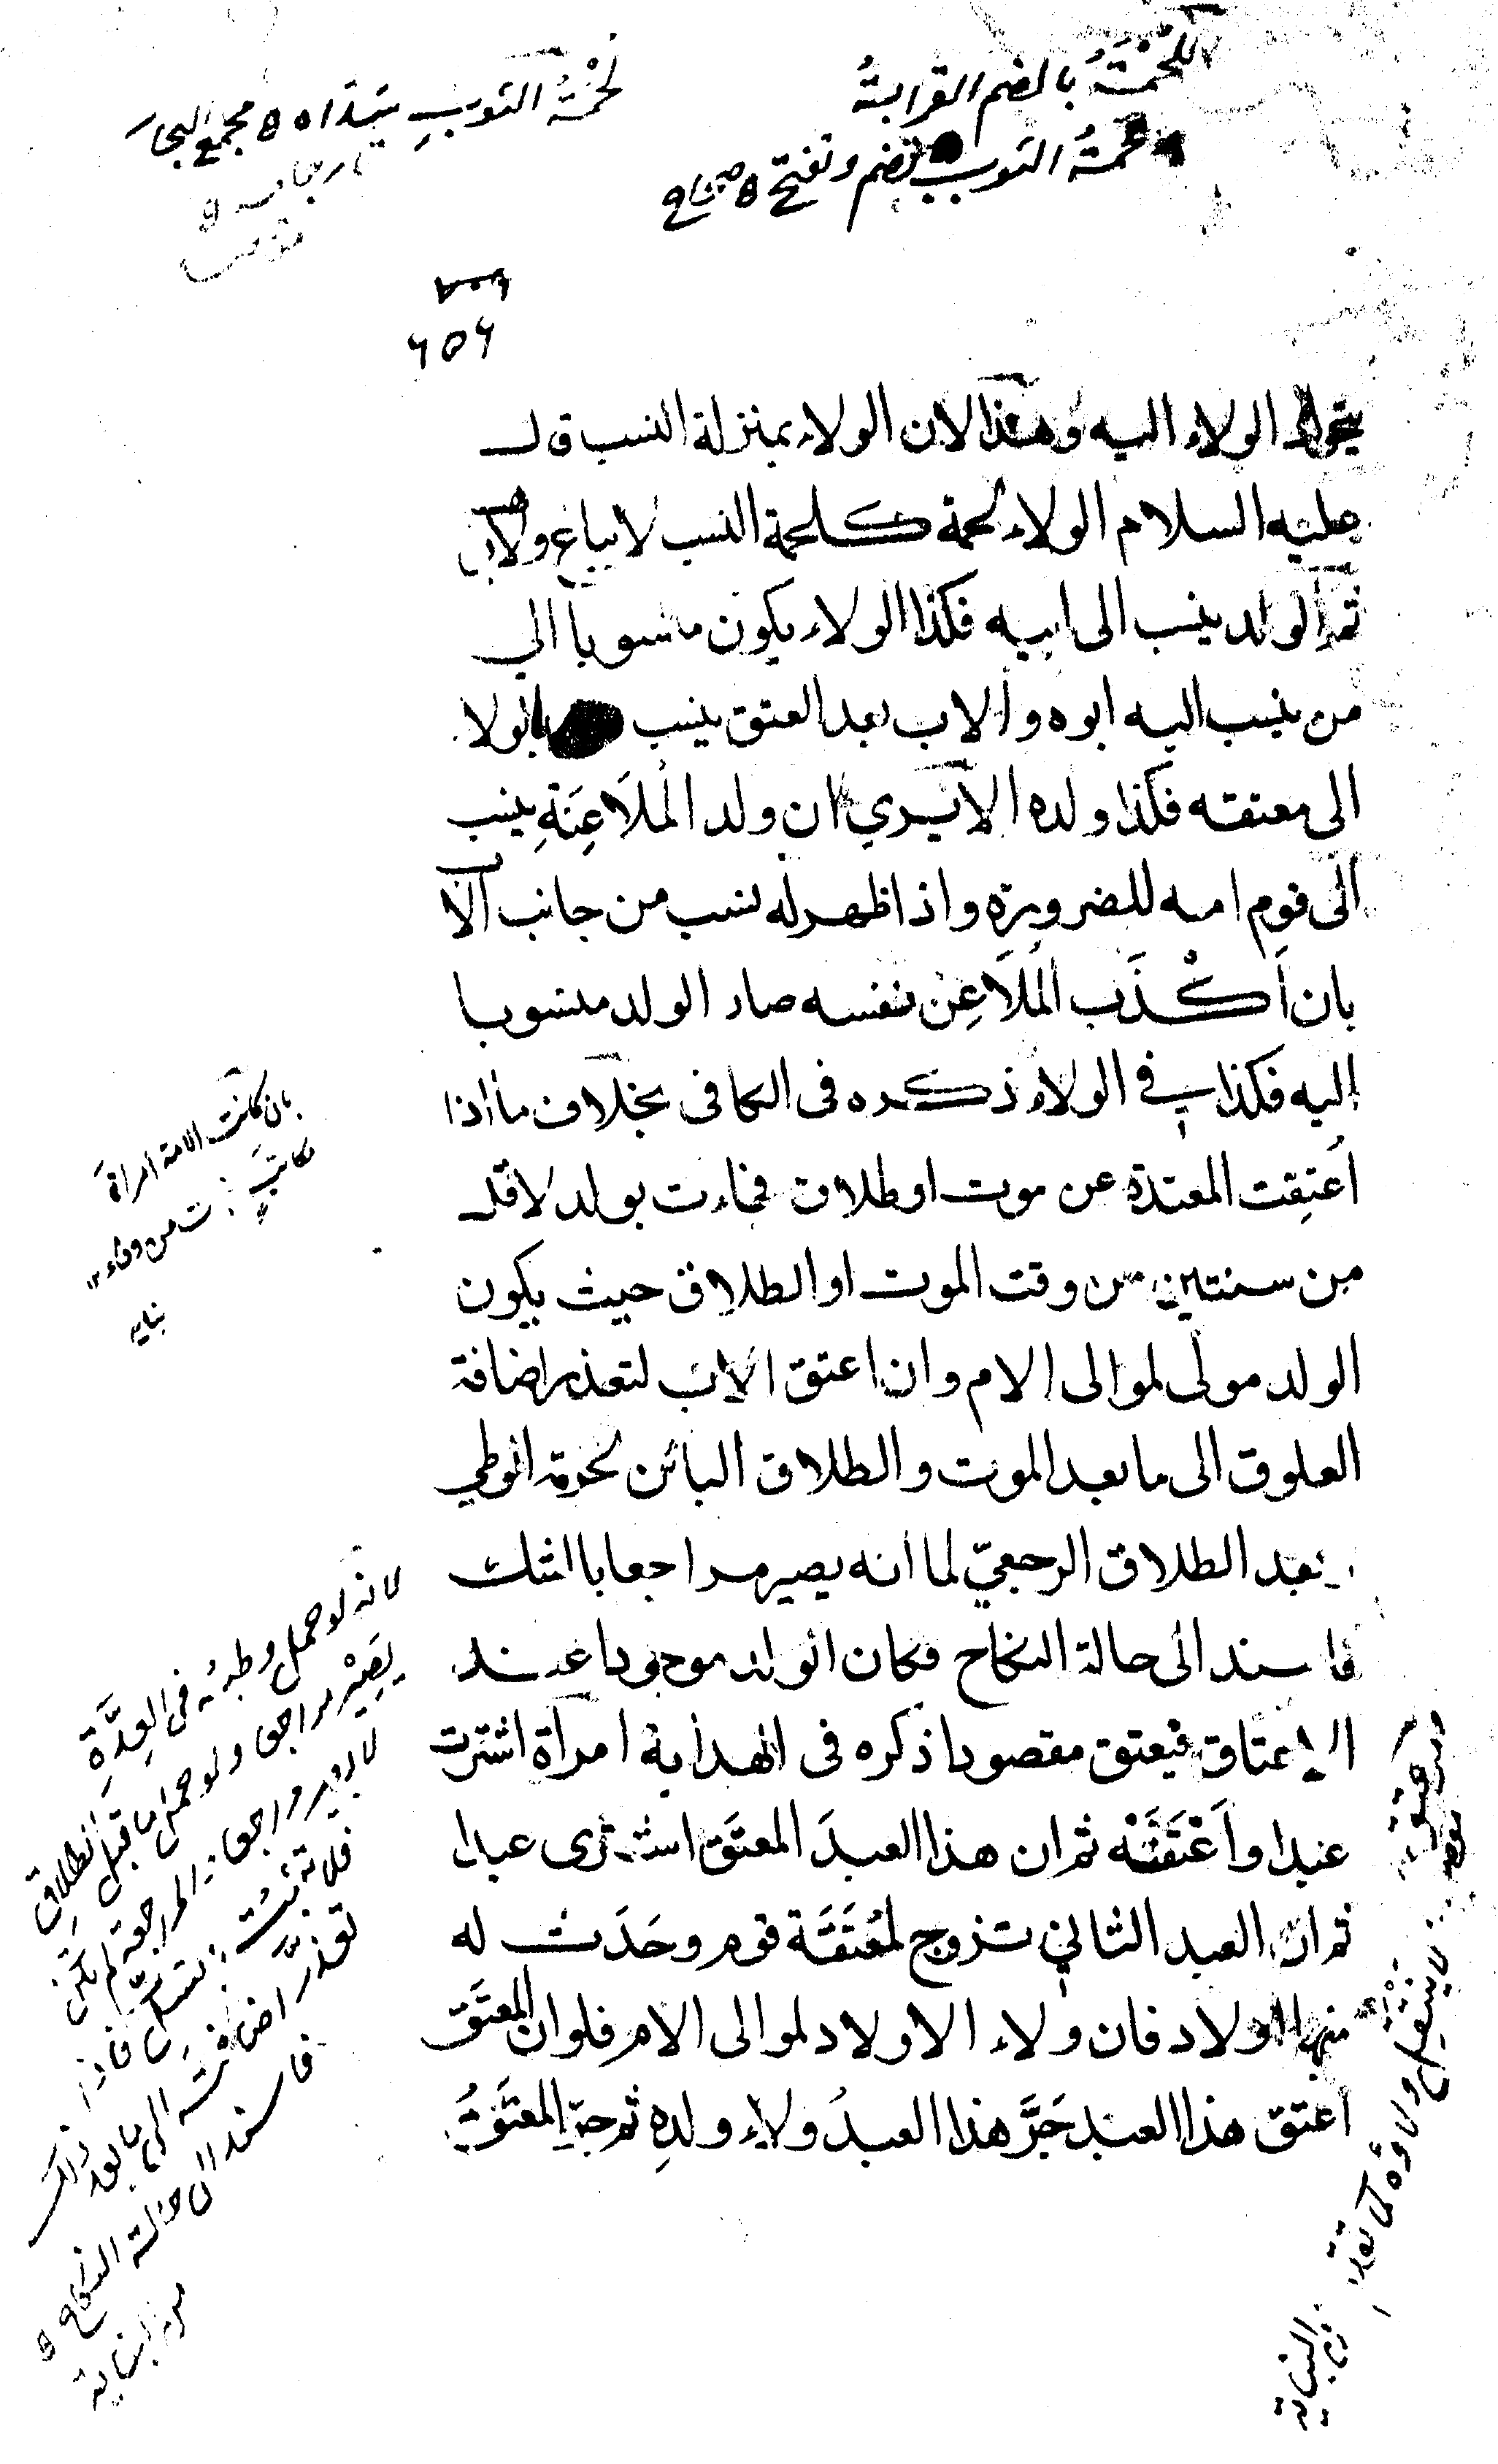 اللُّحْمَةُ بالضم القرابةُ
ولحمةُ الثوب تضم وتفتح ه صحاح
لُحْمَةُ الثوبِ سَداه ه مجمع البحار
٤٥٤
الولاء اليه وهذا لان الولاء بمنزلة النسب قال
عليه السلام الولاء لحمة كلحمة النسب لا يباع ولا
ثم الولد ينسب الى ابيه فكذا الولاء يكون منسوبا الى
من ينسب اليه ابوه والاب بعد العتق ينسب بالولاء
الى معتقه فكذا ولده الا يرى ان ولد المُلَاعِنَةِ ينسب
الى قوم امه للضرورة واذا ظهر له نسب من جانب الاب
بان أَكْذَبَ المُلَاعِن نفسه صار الولد منسوبا
اليه فكذا في الولاء ذكره فى الكافى بخلاف ما اذا
أُعتِقت المعتدة عن موت او طلاق فجاءت بولد لاقل
من سنتين من وقت الموت او الطلاق حيث يكون
الولد مولى لموالى الام وان اعتق الاب لتعذر اضافة
العلوق الى ما بعد الموت والطلاق البائن لحرمة الوطي
وبعد الطلاق الرجعيّ لما انه يصير مراجعا بالشك
فاسند الى حالة النكاح فكان الولد موجودا عند
الاعتاق فيعتق مقصودا ذكره فى الهداية امرأة اشترت
عبدا وأَعْتَقَتْه ثم ان هذا العبدَ المعتَق اشترى عبدا
ثم ان العبد الثاني تزوج لمُعْتَقَة قوم وحَدَث له
منها اولاد فان ولاء الاولاد لموالى الام فلو ان المعتَق
اعتق هذا العبد جَرَّ هذا العبدُ ولاء ولدِه ثم جرّ المعتَقُ
بان كانت الامة امرأة
مكاتَبٍ من وفاء
بنايه
لانه لو حمل وطيه فى العِدَّةِ
يَصِيرُ مراجعا ولو حمل ما قبل الطلاقِ
لا يصير مراجعا والمراجعة لم تكن
فلا تثبت بالشكّ فاذا
تعذّر اضافته الى ما بعد ذلك
فاسند الى حالة النكاح ه
من البناية
ينتقل ولاؤه
من البناية